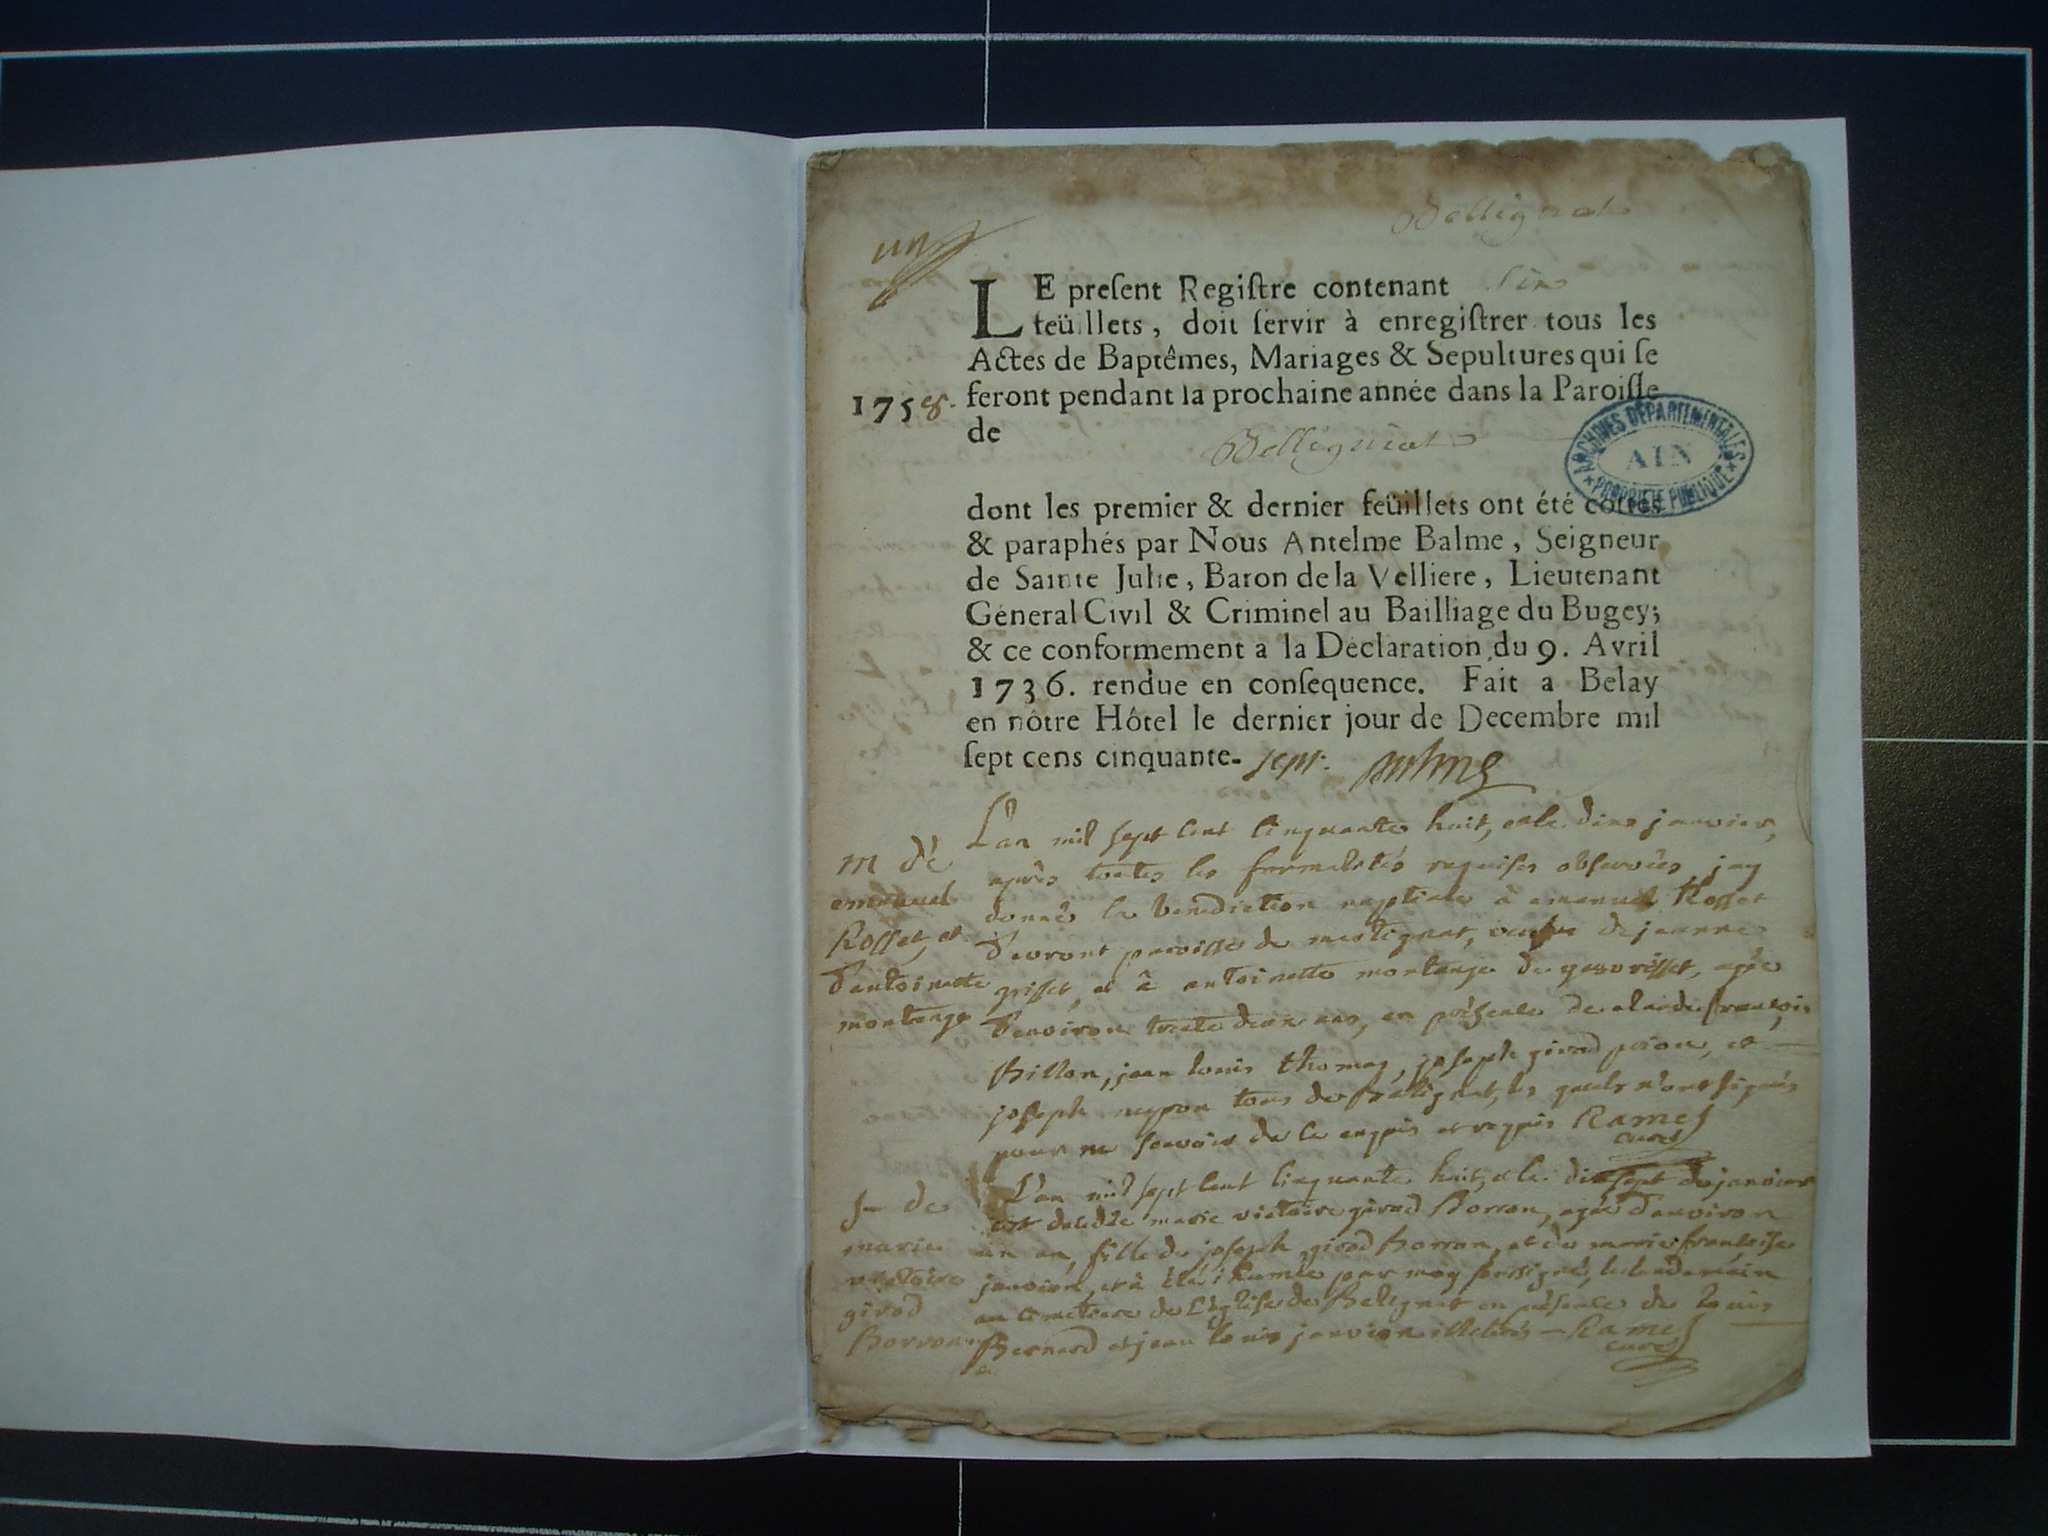 Bellignat
un
LE preſent Regiſtre contenant Six
feüillets, doit ſervir à enregiſtrer tous les
Actes de Baptêmes, Mariages & Sepultures qui ſe
1758. feront pendant la prochaine année dans la Paroiſſe
de Bellignat
ARCHIVES DÉPARTEMENTALES
AIN
PROPRIÉTÉ PUBLIQUE
dont les premier & dernier feüillets ont été cottés
& paraphés par Nous Antelme Balme, Seigneur
de Sainte Julie, Baron de la Velliere, Lieutenant
General Civil & Criminel au Bailliage du Bugey;
& ce conformement a la Declaration du 9. Avril
1736. rendue en conſequence. Fait a Belay
en nôtre Hôtel le dernier jour de Decembre mil
ſept cens cinquante-sept.
L'an mil sept cent cinquante huit, et le dix janvier,
après toutes les formalités requises observées jay
donné la benediction nuptiale à emanuel Rosset
paroisse de martignat, de jeanne
et à antoinette montange de agée
d'environ trente deux ans, en présence de claude françois
Billon, jean louis thomas, joseph girod et
joseph tous de Belignat, les quels n'ont signés
pour ne sçavoir de ce enquis et requis Ramel
curé
m de
emanuel
Rosset, et
d'antoinette
montange
L'an mil sept cent cinquante huit, et le dixsept de janvier
est decedée marie victoire girod Borron, agée d'environ
un an, fille de joseph girod Borron, et de marie françoise
janvion, et à été inhumée par moy soussigné, le lendemain
au cimetiere de l'église de Belignat en présence de louis
Bernard et jean louis janvion illetérés — Ramel
curé
s de
marie
victoire
girod
Borron